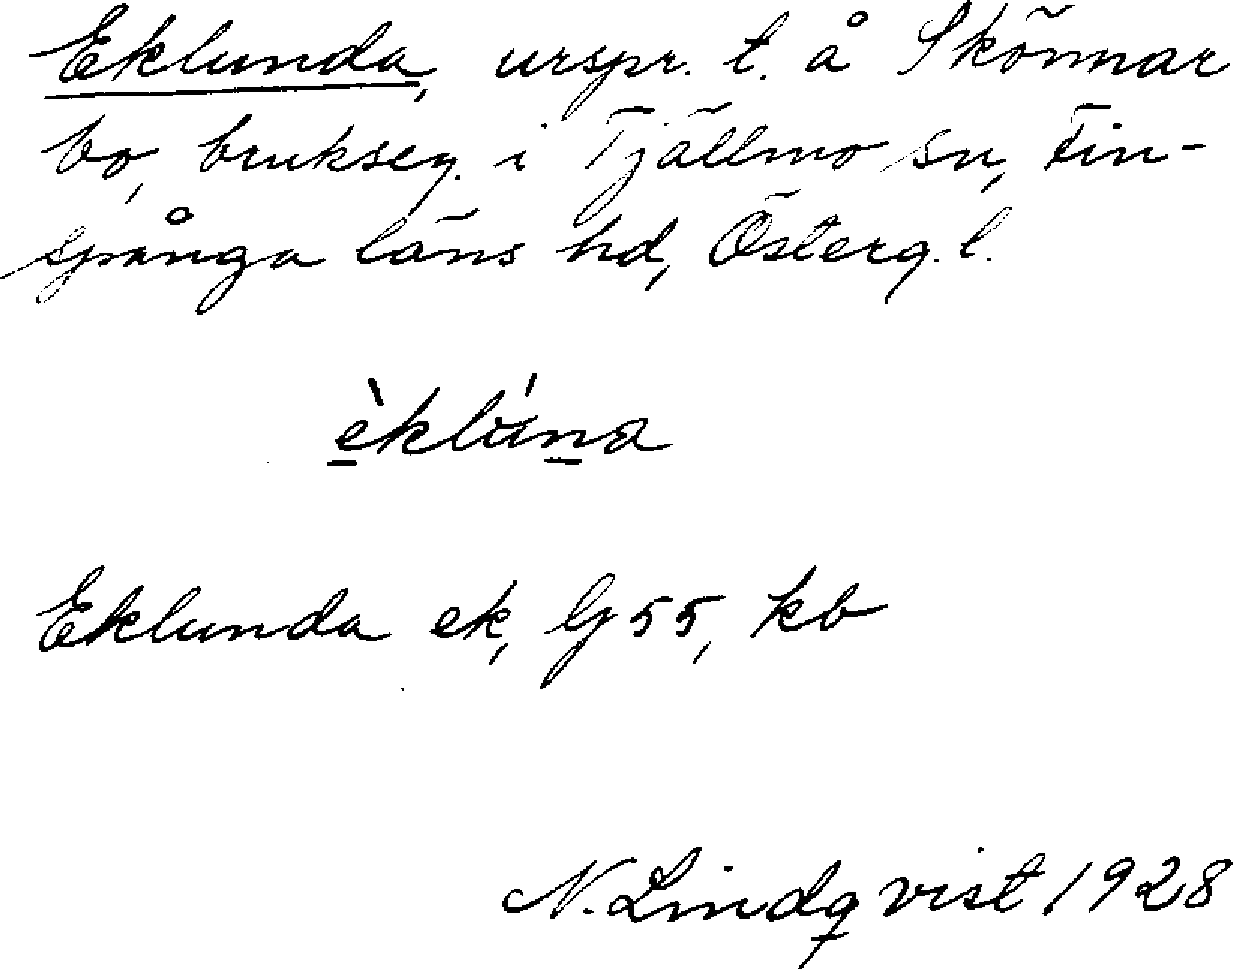 Eklunda, urspr. t. å Skönnar
bo, brukseg. i Tjällmo sn, Fin-
spånga läns hd, Österg. l.
èklúna
Eklunda ek, G 55, kb
N. Lindqvist 1928